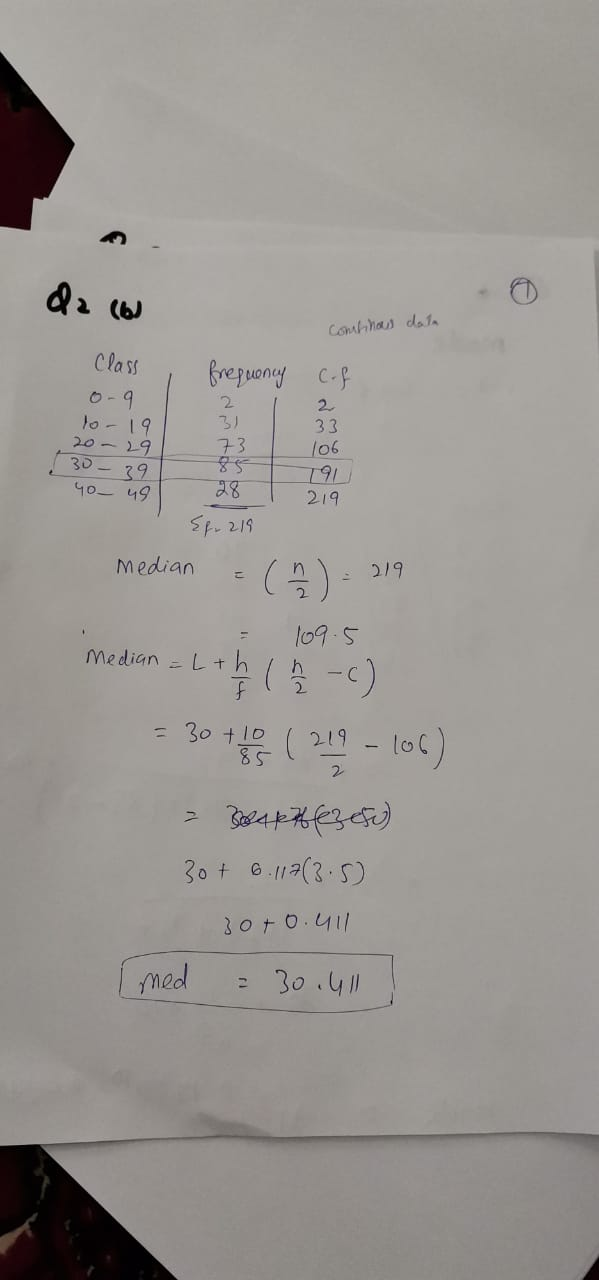 Q2 (b)
①
Continous data
Class frequency C.f
0-9 2 2
10-19 31 33
20-29 73 106
30-39 85 191
40-49 28 219
Σf= 219
Median = (n/2) = 219
= 109.5
Median = L + h/f (n/2 - c)
= 30 + 10/85 (219/2 - 106)
=
30 + 0.117(3.5)
30 + 0.411
med = 30.411